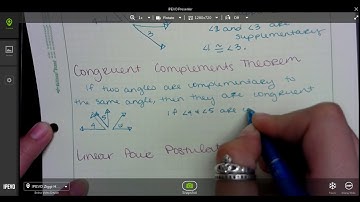 IPEVO Presenter
1x
Rotate
1280x720
Off
∠2 and ∠3 are
supplementary
∠1 ≅ ∠3.
3
Congruent Complements Theorem
If two angles are complementary to
the same angle, then they are congruent
4 5 6
if ∠4 & ∠5 are
Linear Pair Postulat
IPEVO
IPEVO Ziggi-H
Snapshot